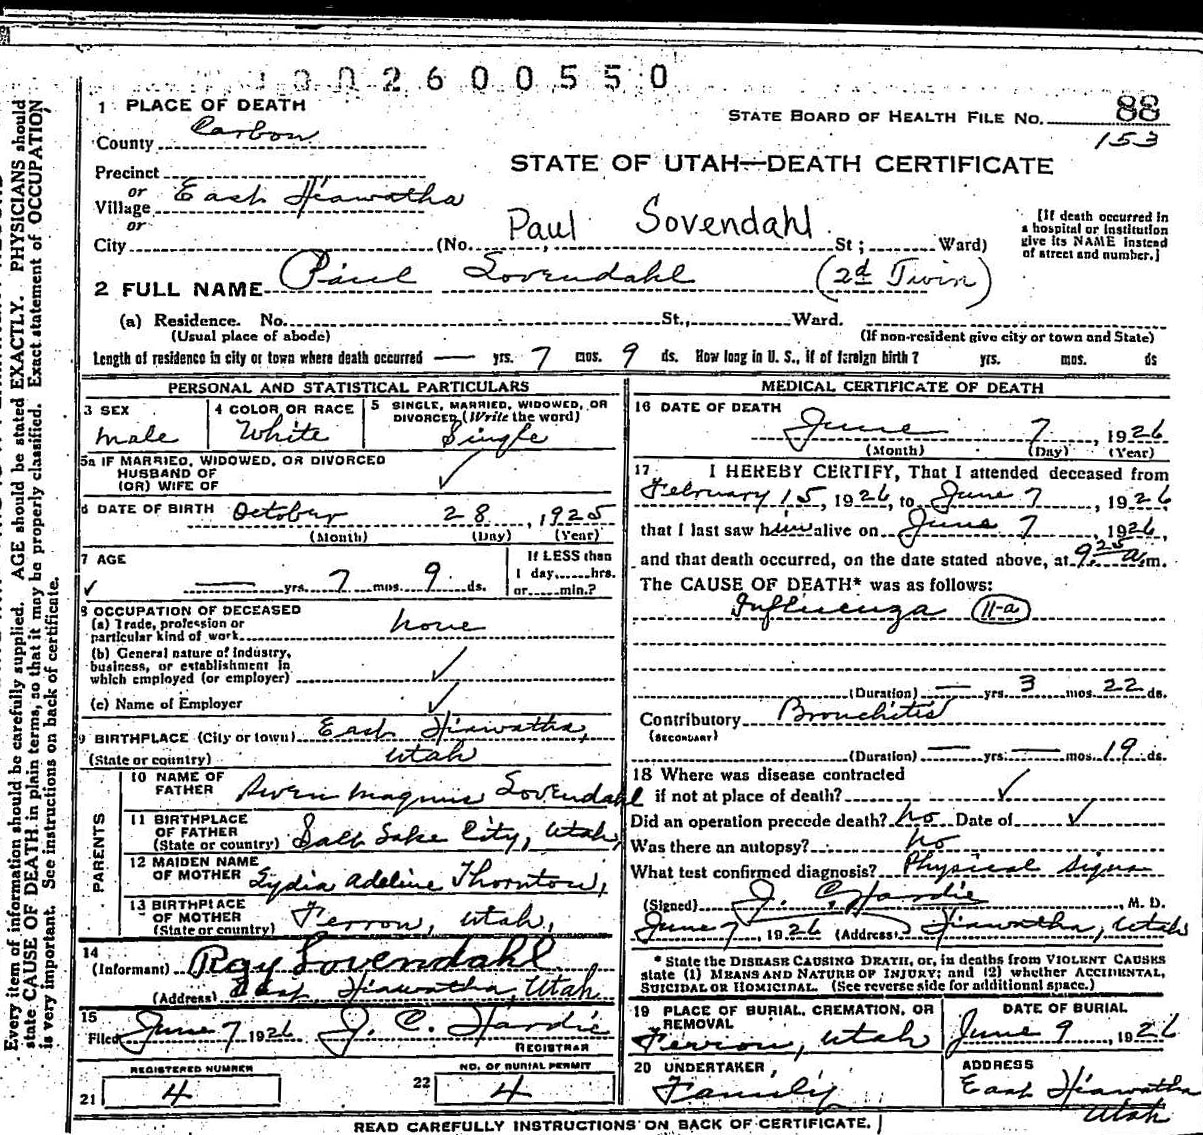 002600550
1 PLACE OF DEATH
County Carbon
STATE BOARD OF HEALTH FILE NO. 88
153
STATE OF UTAH—DEATH CERTIFICATE
Precinct
or
Village East Hiawatha
or
City (No. Paul Sovendahl St; Ward)
[If death occurred in
a hospital or institution
give its NAME instead
of street and number.]
2 FULL NAME Paul Sovendahl (2d Twin)
(a) Residence. No. St., Ward.
(Usual place of abode) (If non-resident give city or town and State)
Length of residence in city or town where death occurred — yrs. 7 mos. 9 ds. How long in U. S., if of foreign birth? yrs. mos. ds
PERSONAL AND STATISTICAL PARTICULARS
3 SEX
male
4 COLOR OR RACE
White
5 SINGLE, MARRIED, WIDOWED, OR
DIVORCED (Write the word)
Single
5a IF MARRIED, WIDOWED, OR DIVORCED
HUSBAND OF
(OR) WIFE OF ✓
6 DATE OF BIRTH October 28, 1925
(Month) (Day) (Year)
7 AGE
✓ — yrs. 7 mos. 9 ds.
If LESS than
1 day,......hrs.
or......min.?
8 OCCUPATION OF DECEASED
(a) Trade, profession or
particular kind of work none
(b) General nature of industry,
business, or establishment in
which employed (or employer) ✓
(c) Name of Employer ✓
9 BIRTHPLACE (City or town) East Hiawatha,
(State or country) Utah
PARENTS
10 NAME OF
FATHER Magnus Sovendahl
11 BIRTHPLACE
OF FATHER
(State or country) Salt Lake City, Utah,
12 MAIDEN NAME
OF MOTHER Lydia Adeline Thornton,
13 BIRTHPLACE
OF MOTHER
(State or country) Ferron, Utah,
14
(Informant) Roy Sovendahl
(Address) East Hiawatha, Utah
15
Filed June 7 1926 J. C. Hardie
REGISTRAR
REGISTERED NUMBER
21 4
NO. OF BURIAL PERMIT
22 4
MEDICAL CERTIFICATE OF DEATH
16 DATE OF DEATH
June 7, 1926
(Month) (Day) (Year)
17 I HEREBY CERTIFY, That I attended deceased from
February 15, 1926, to June 7, 1926,
that I last saw him alive on June 7 1926,
and that death occurred, on the date stated above, at 9:25 a.m.
The CAUSE OF DEATH* was as follows:
Influenza (11-a)
(Duration) — yrs. 3 mos. 22 ds.
Contributory Bronchitis
(SECONDARY)
(Duration) — yrs. — mos. 19 ds.
18 Where was disease contracted
if not at place of death? ✓
Did an operation precede death? no Date of ✓
Was there an autopsy? no
What test confirmed diagnosis? Physical signs
(Signed) J. C. Hardie, M. D.
June 7, 1926 (Address) Hiawatha, Utah
* State the DISEASE CAUSING DEATH, or, in deaths from VIOLENT CAUSES
state (1) MEANS AND NATURE OF INJURY; and (2) whether ACCIDENTAL,
SUICIDAL OR HOMICIDAL. (See reverse side for additional space.)
19 PLACE OF BURIAL, CREMATION, OR
REMOVAL
Ferron, Utah
DATE OF BURIAL
June 9, 1926
20 UNDERTAKER,
Family
ADDRESS
East Hiawatha
Utah
READ CAREFULLY INSTRUCTIONS ON BACK OF CERTIFICATE.
Every item of information should be carefully supplied. AGE should be stated EXACTLY. PHYSICIANS should
state CAUSE OF DEATH in plain terms, so that it may be properly classified. Exact statement of OCCUPATION
is very important. See instructions on back of certificate.